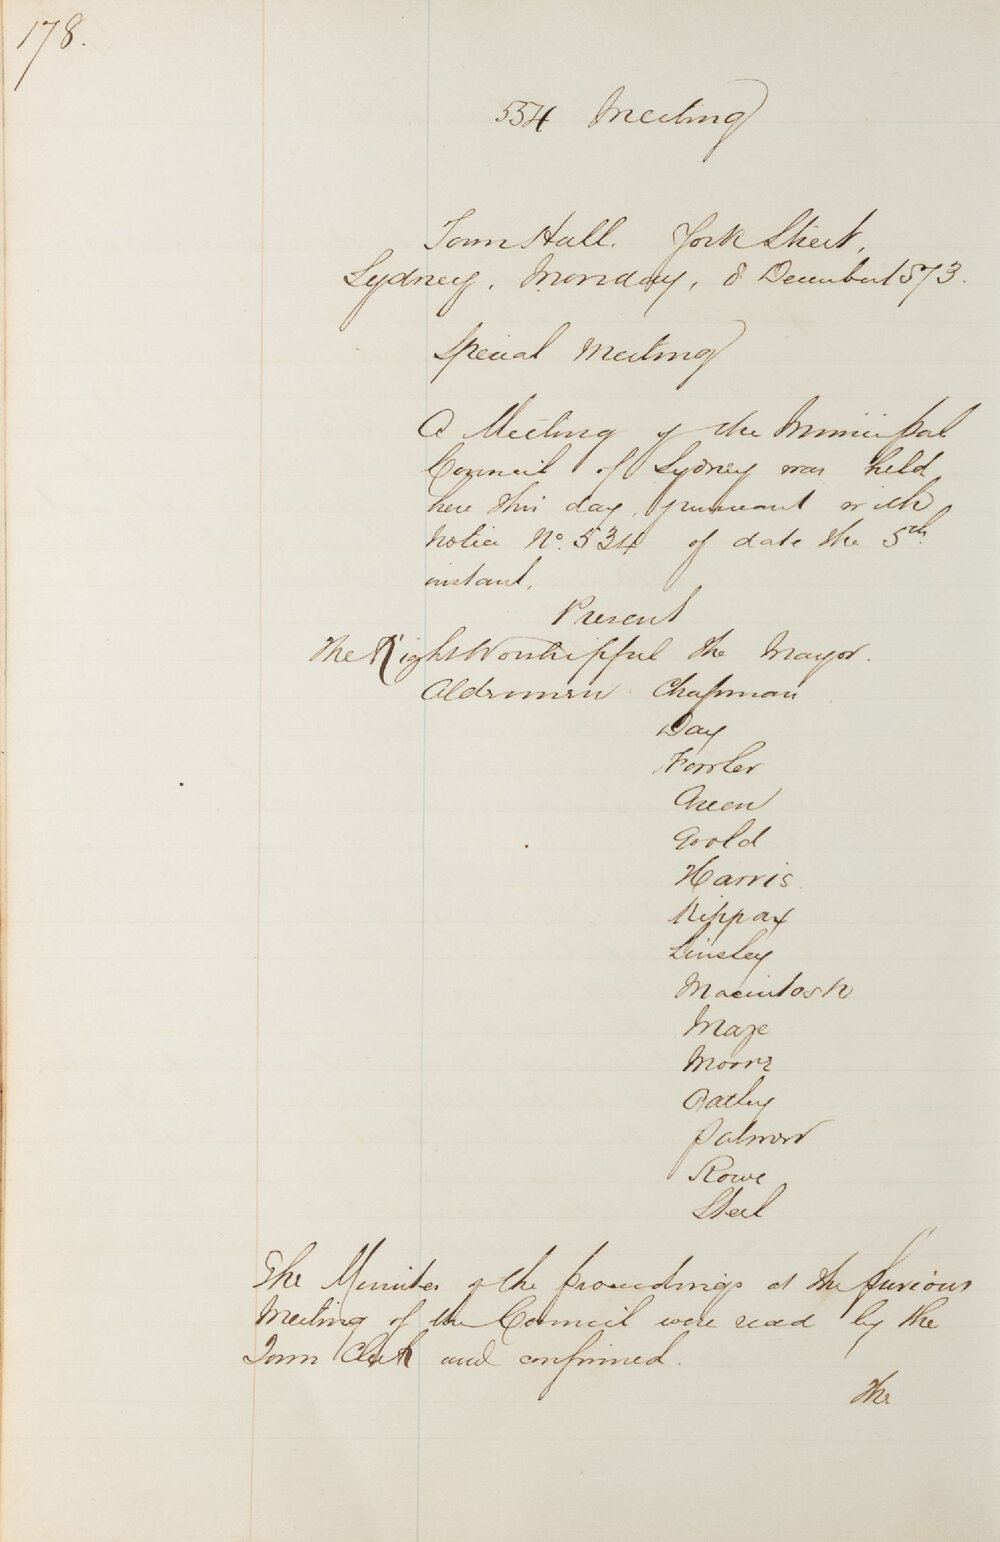 178.
534 Meeting
Town Hall. York Street,
Sydney, Monday, 8 December 1873.
Special Meeting
A Meeting of the Municipal
Council of Sydney was held
here this day, pursuant with
notice No. 534 of date the 5th
instant.
Present
The Right Worshipful the Mayor.
Aldermen Chapman
Day
Fowler
Green
Goold
Harris.
Kippax
Linsley
Macintosh
Maze
Moore
Oatley
Palmer
Rowe
Steel
The Minutes of the proceedings at the previous
Meeting of the Council were read by the
Town Clerk and confirmed.
The